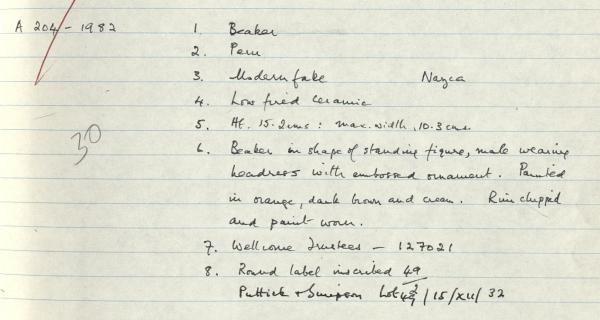 A 204 - 1982
1. Beaker
2. Peru
3. Modern fake Nazca
4. Low fired ceramic
5. Ht. 15.2cms : max. width, 10.3 cms.
30
6. Beaker in shape of standing figure, male wearing
headress with embossed ornament. Painted
in orange, dark brown and cream. Rim chipped
and paint worn.
7. Wellcome Trustees - 127021
8. Round label inscribed 49
Puttick & Simpson Lot 49 / 15/XII/32